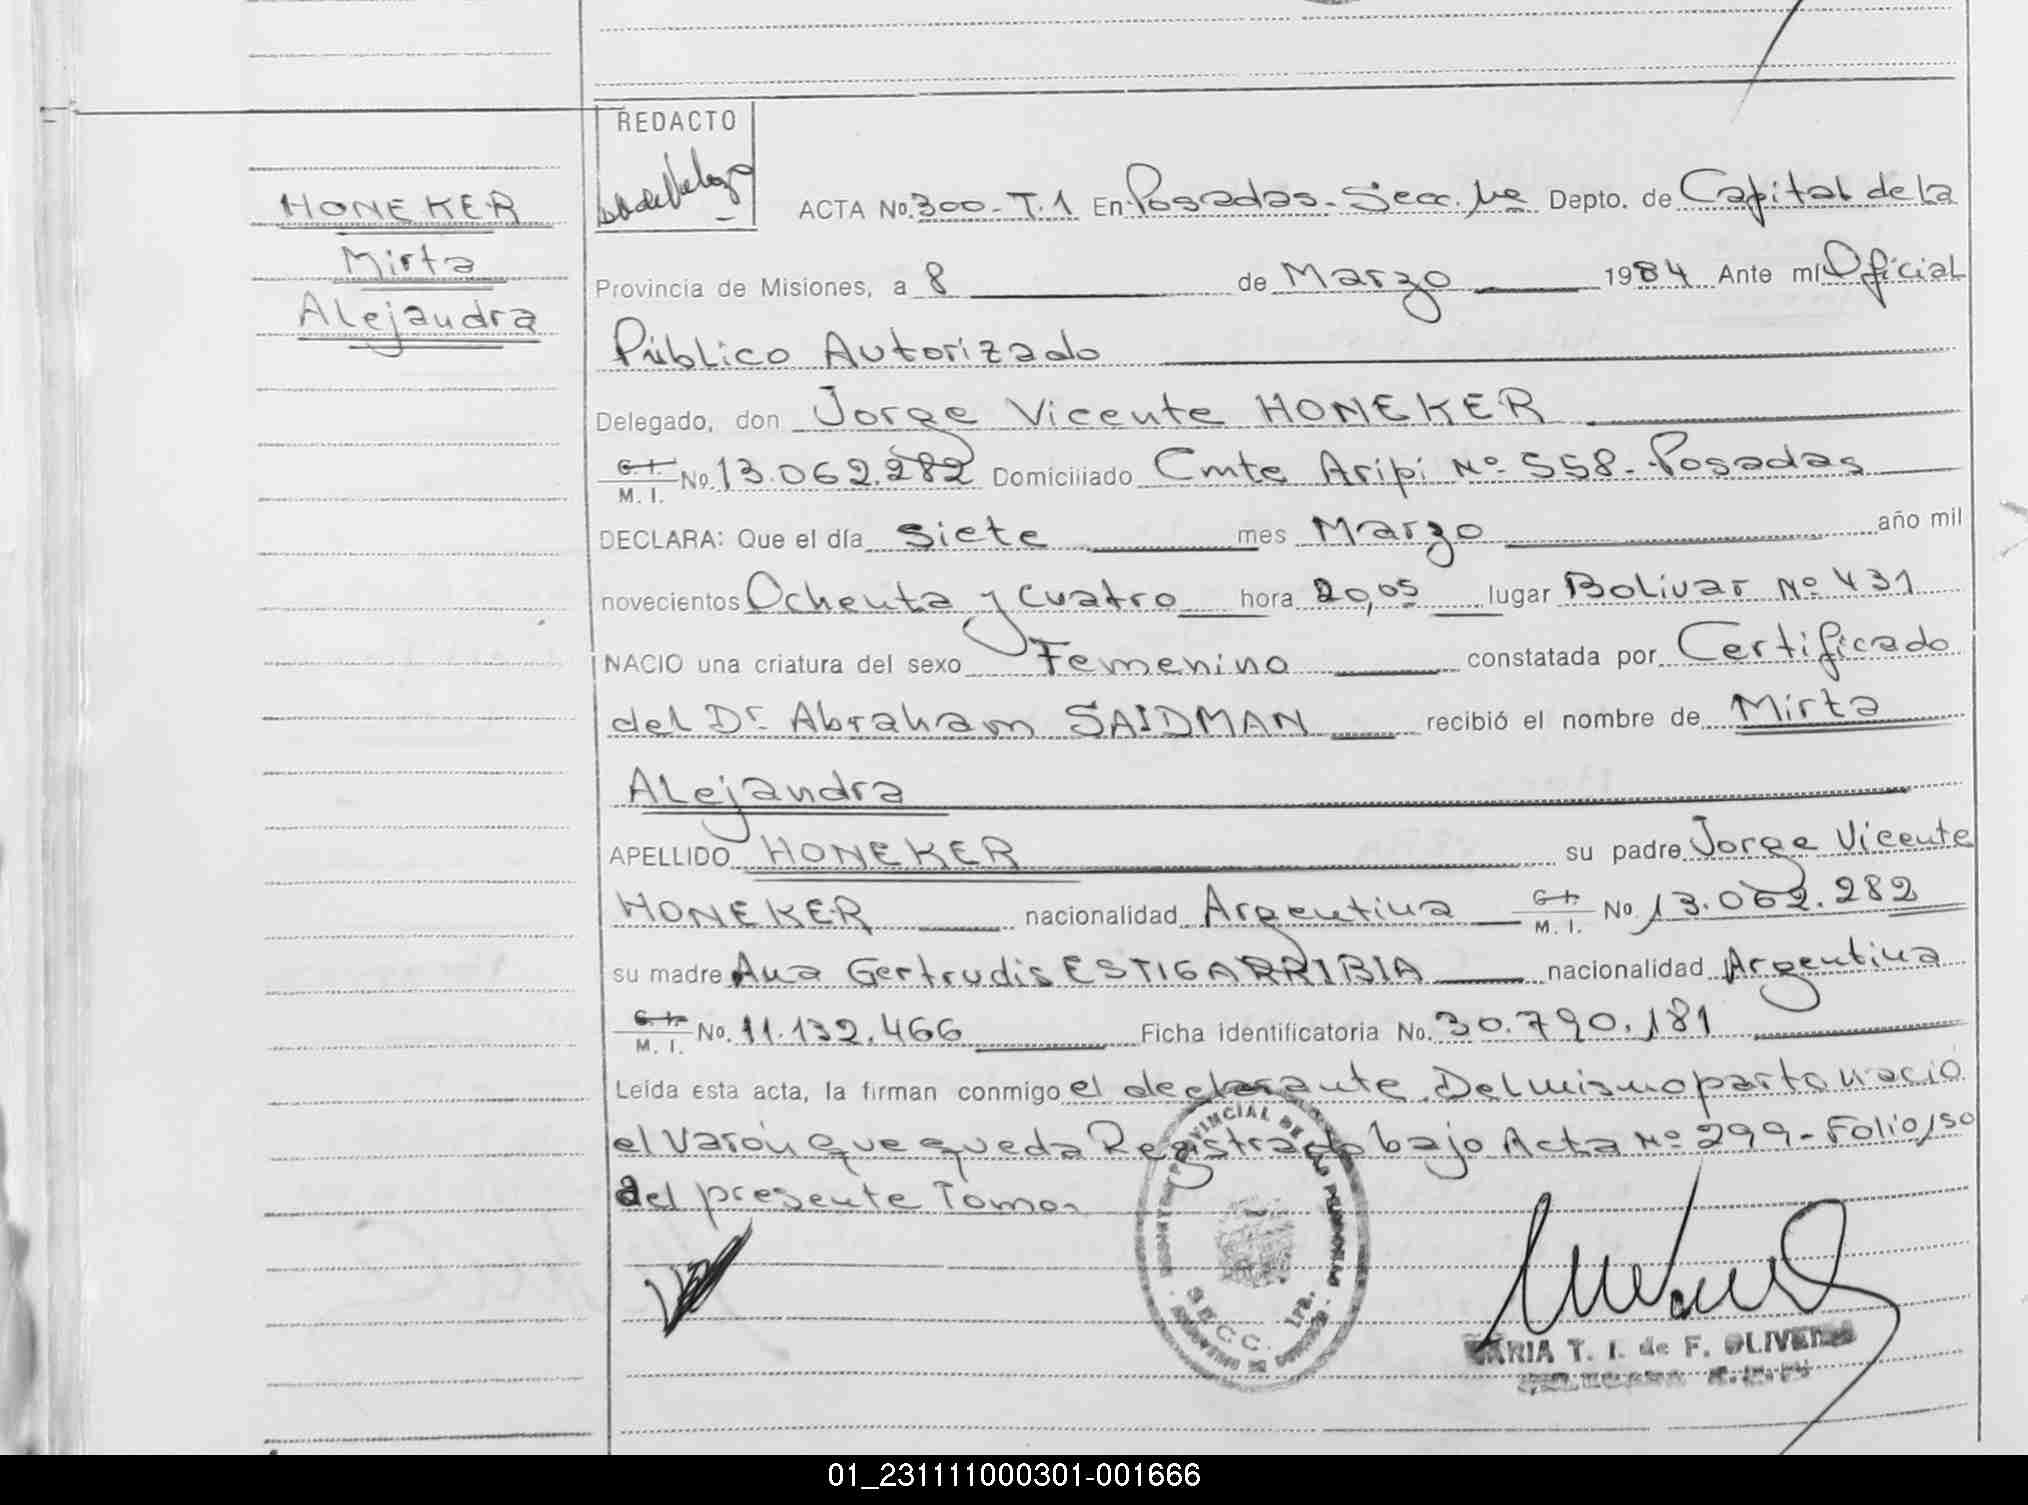 HONEKER
Mirta
Alejandra
REDACTO
ACTA No. 300-T.1 En Posadas-Secc. 1ra Depto. de Capital de la
Provincia de Misiones, a 8 de Marzo 1984 Ante mí Oficial
Público Autorizado
Delegado, don Jorge Vicente HONEKER
C. I.
M. I. No. 13.062.282 Domiciliado Cmte Aripi Nº 558-Posadas
DECLARA: Que el día siete mes Marzo año mil
novecientos Ochenta y cuatro hora 20,05 lugar Bolivar Nº 431
NACIO una criatura del sexo Femenino constatada por Certificado
del Dr. Abraham SAIDMAN recibió el nombre de Mirta
Alejandra
APELLIDO HONEKER su padre Jorge Vicente
HONEKER nacionalidad Argentina C. I. M. I. No. 13.062.282
su madre Ana Gertrudis ESTIGARRIBIA nacionalidad Argentina
C. I. M. I. No. 11.132.466 Ficha identificatoria No. 30.790.181
Leída esta acta, la firman conmigo el declarante. Del mismo parto nació
el Varón que queda Registrado bajo Acta Nº 299-Folio 150
del presente Tomo.
PROVINCIAL DE LAS PERSONAS
SECC. 1ra.
MARIA T. I. de F. OLIVEIRA
01_231111000301-001666